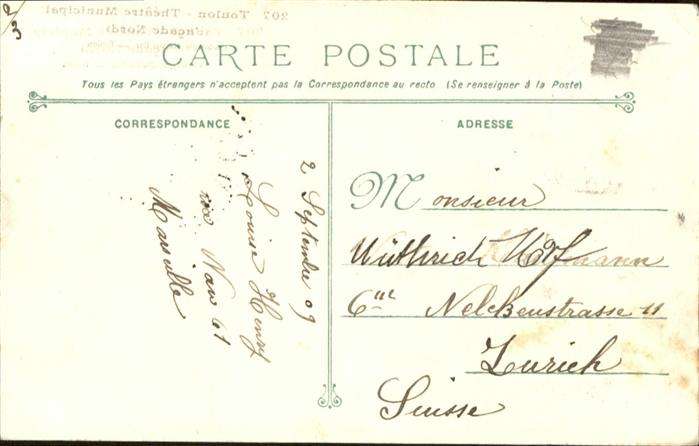 2/3
207 Toulon - Théâtre Municipal
(Façade Nord)
CARTE POSTALE
Tous les Pays étrangers n'acceptent pas la Correspondance au recto (Se renseigner à la Poste)
CORRESPONDANCE
2 Septembre 09
Louise Henry
rue Nau 61
Marseille
ADRESSE
Monsieur
Wüthrich Hofmann
Nelkenstrasse 11
Zurich
Suisse